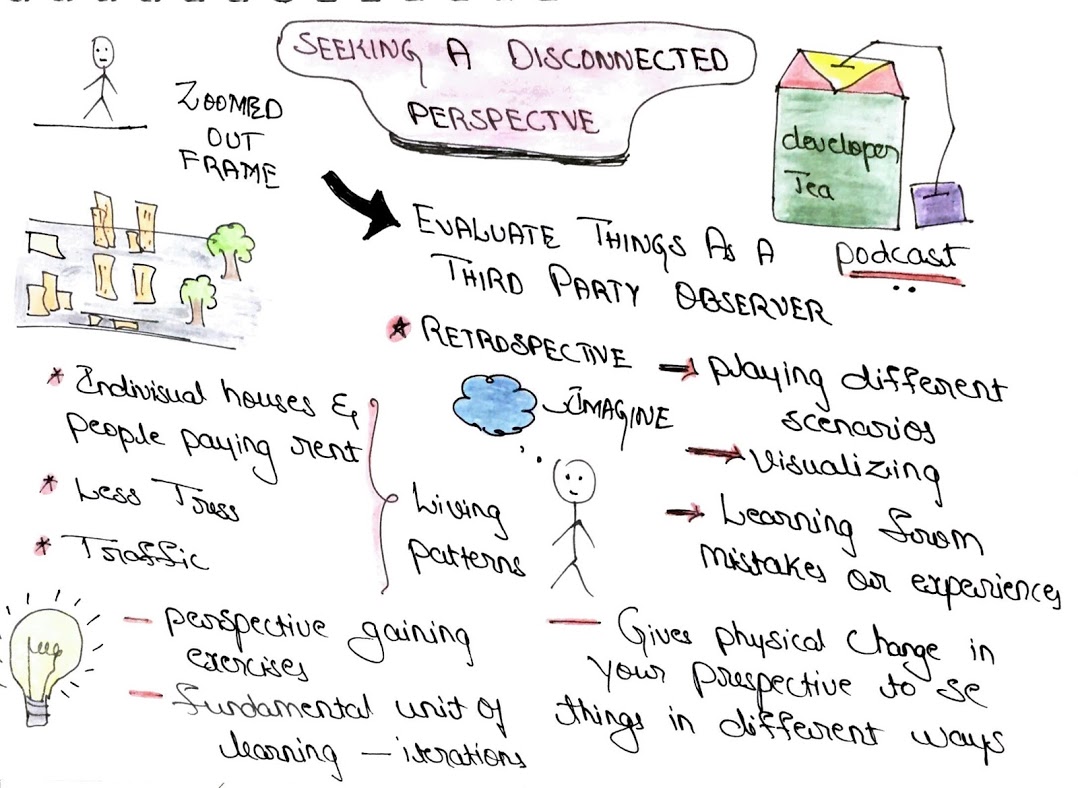 SEEKING A DISCONNECTED
PERSPECTVE
ZOOMED
OUT
FRAME
developer
Tea
podcast
EVALUATE THINGS AS A
THIRD PARTY OBSERVER
* RETROSPECTIVE
IMAGINE
→ Playing different
scenarios
→ Visualizing
→ Learning from
mistakes or experiences
* Indivisual houses &
people paying rent
* Less Tress
* Traffic
Living
patterns
— perspective gaining
exercises
— fundamental unit of
learning — iterations
— Gives physical change in
your prespective to se
things in different ways